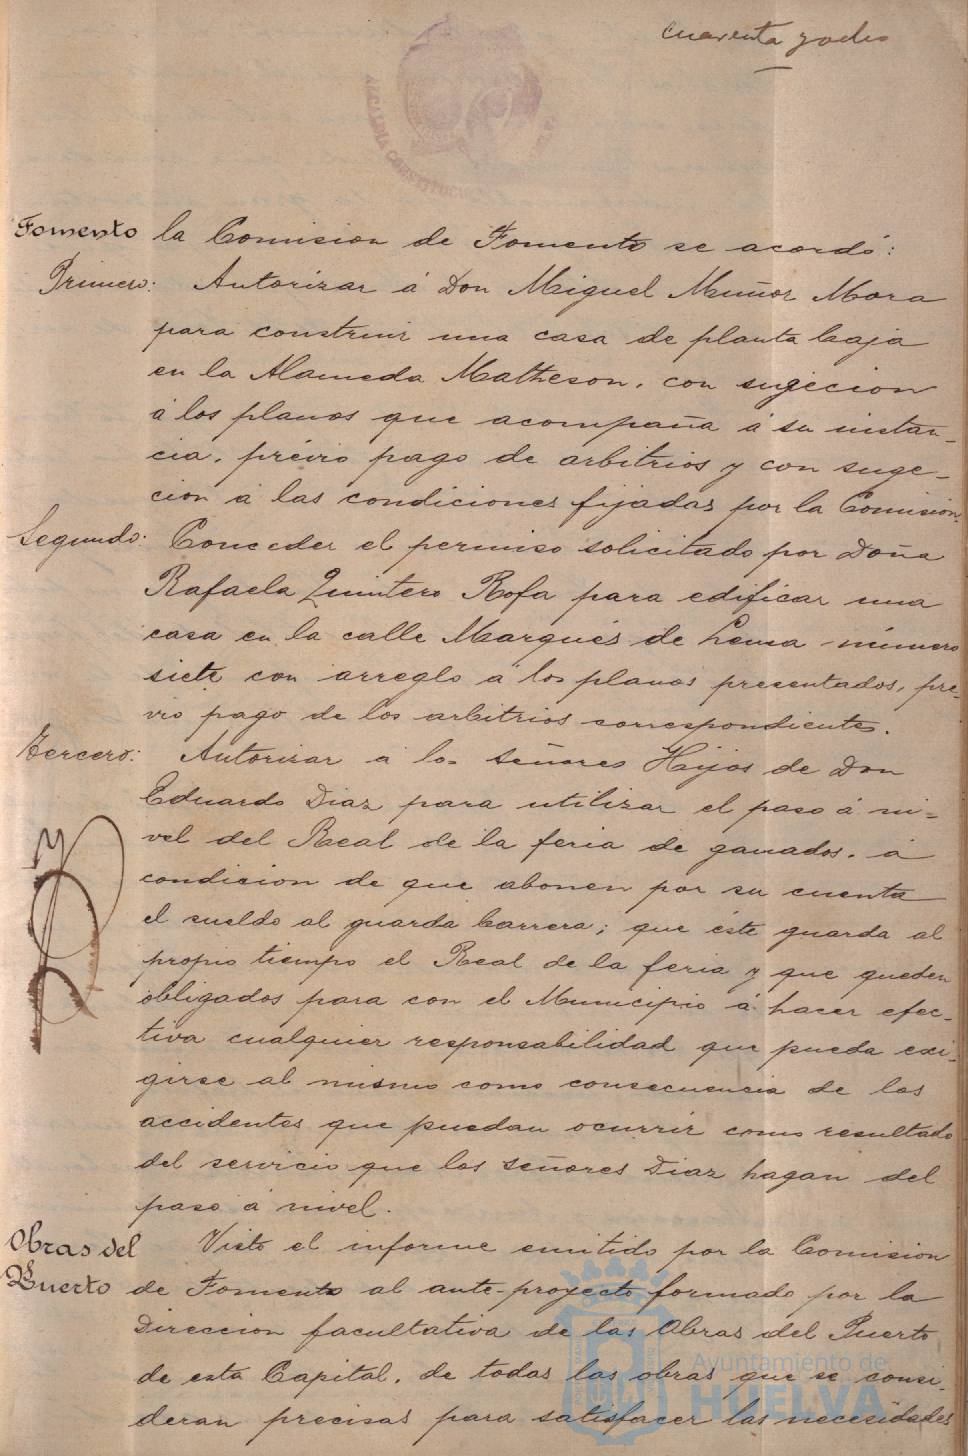 cuarenta y ocho
ALCALDIA CONSTITUCIONAL
Fomento la Comision de Fomento se acordó:
Primero: Autorizar á Don Miguel Muñoz Mora
para construir una casa de planta baja
en la Alameda Matheson, con sugecion
á los planos que acompaña á su instan-
cia, prévio pago de arbitrios y con suge-
cion á las condiciones fijadas por la Comision.
Segundo: Conceder el permiso solicitado por Doña
Rafaela Quintero Rofa para edificar una
casa en la calle Marqués de Lema número
siete con arreglo á los planos presentados, pre-
vio pago de los arbitrios correspondientes.
Tercero: Autorizar á los Señores Hijos de Don
Eduardo Diaz para utilizar el paso á ni-
vel del Real de la feria de ganados, á
condicion de que abonen por su cuenta
el sueldo al guarda barrera; que éste guarda al
propio tiempo el Real de la feria y que queden
obligados para con el Municipio á hacer efec-
tiva cualquier responsabilidad que pueda exi-
girse al mismo como consecuencia de los
accidentes que puedan ocurrir como resultado
del servicio que los Señores Diaz hagan del
paso á nivel.
Obras del Puerto Visto el informe emitido por la Comision
de Fomento al ante-proyecto formado por la
Direccion facultativa de las Obras del Puerto
de esta Capital, de todas las obras que se consi-
deran precisas para satisfacer las necesidades
Ayuntamiento de
HUELVA